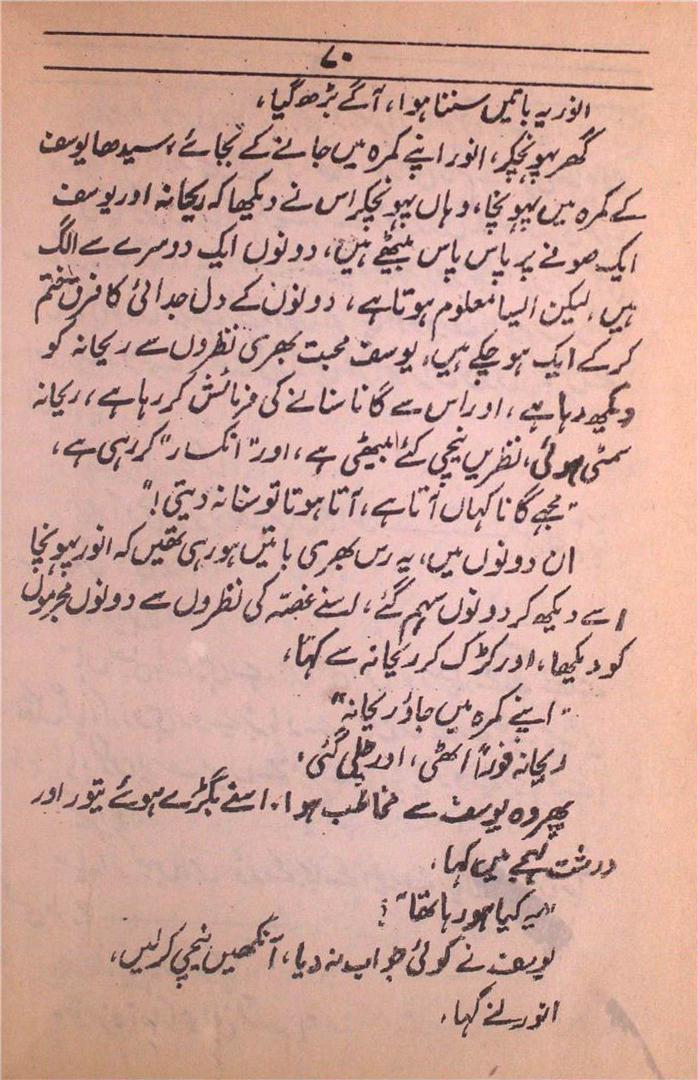 ۷۰
انور یہ باتیں سنتا ہوا، آگے بڑھ گیا،
گھر پہونچکر، انور اپنے کمرہ میں جانے کے بجائے، سیدھا یوسف
کے کمرہ میں پہونچا، وہاں پہونچکر اس نے دیکھا کہ ریحانہ اور یوسف
ایک صوفے پر پاس پاس بیٹھے ہیں، دونوں ایک دوسرے سے الگ
ہیں، لیکن ایسا معلوم ہوتا ہے، دونوں کے دل جدائی کا فرق ختم
کر کے ایک ہو چکے ہیں، یوسف محبت بھری نظروں سے ریحانہ کو
دیکھ رہا ہے، اور اس سے گانا سنانے کی فرمائش کر رہا ہے، ریحانہ
سمٹی ہوئی، نظریں نیچی کئے بیٹھی ہے، اور "انکسار" کر رہی ہے،
"مجھے گانا کہاں آتا ہے، آتا ہوتا تو سنا نہ دیتی!"
ان دونوں میں، یہ رس بھری باتیں ہو رہی تھیں کہ انور پہونچا
اسے دیکھ کر دونوں سہم گئے، اسنے غصہ کی نظروں سے دونوں مجرموں
کو دیکھا، اور کڑک کر ریحانہ سے کہا،
"اپنے کمرہ میں جاؤ ریحانہ"
ریحانہ فوراً اٹھی، اور چلی گئی،
پھر وہ یوسف سے مخاطب ہوا، اسنے بگڑے ہوئے تیور اور
درشت لہجے میں کہا،
"یہ کیا ہو رہا تھا"؟
یوسف نے کوئی جواب نہ دیا، آنکھیں نیچی کر لیں،
انور نے کہا،